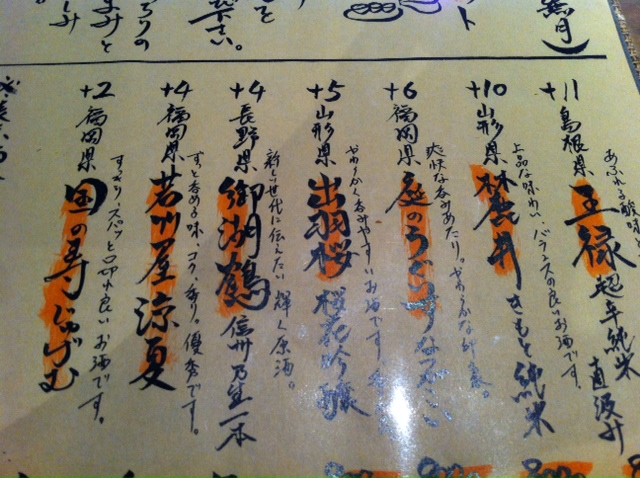 無月）
+11 島根県 王禄 超辛純米 直汲み
+10 山形県 麓井 きもと純米
上品な味わい、バランスの良いお酒です。
+6 福岡県 庭のうぐいす なつがこい
爽快な呑みあたり。やわらかな印象。
+5 山形県 出羽桜 桜花吟醸
やわらかく呑みやすいお酒です
+4 長野県 御湖鶴 信州乃生一本
新しい世代に伝えたい輝く原酒。
+4 福岡県 若竹屋 涼夏
すっと呑める味、コク、香り。優秀です。
+2 福岡県 田の寿 じゅげむ
すっきり、スパッと口切れ良いお酒です。